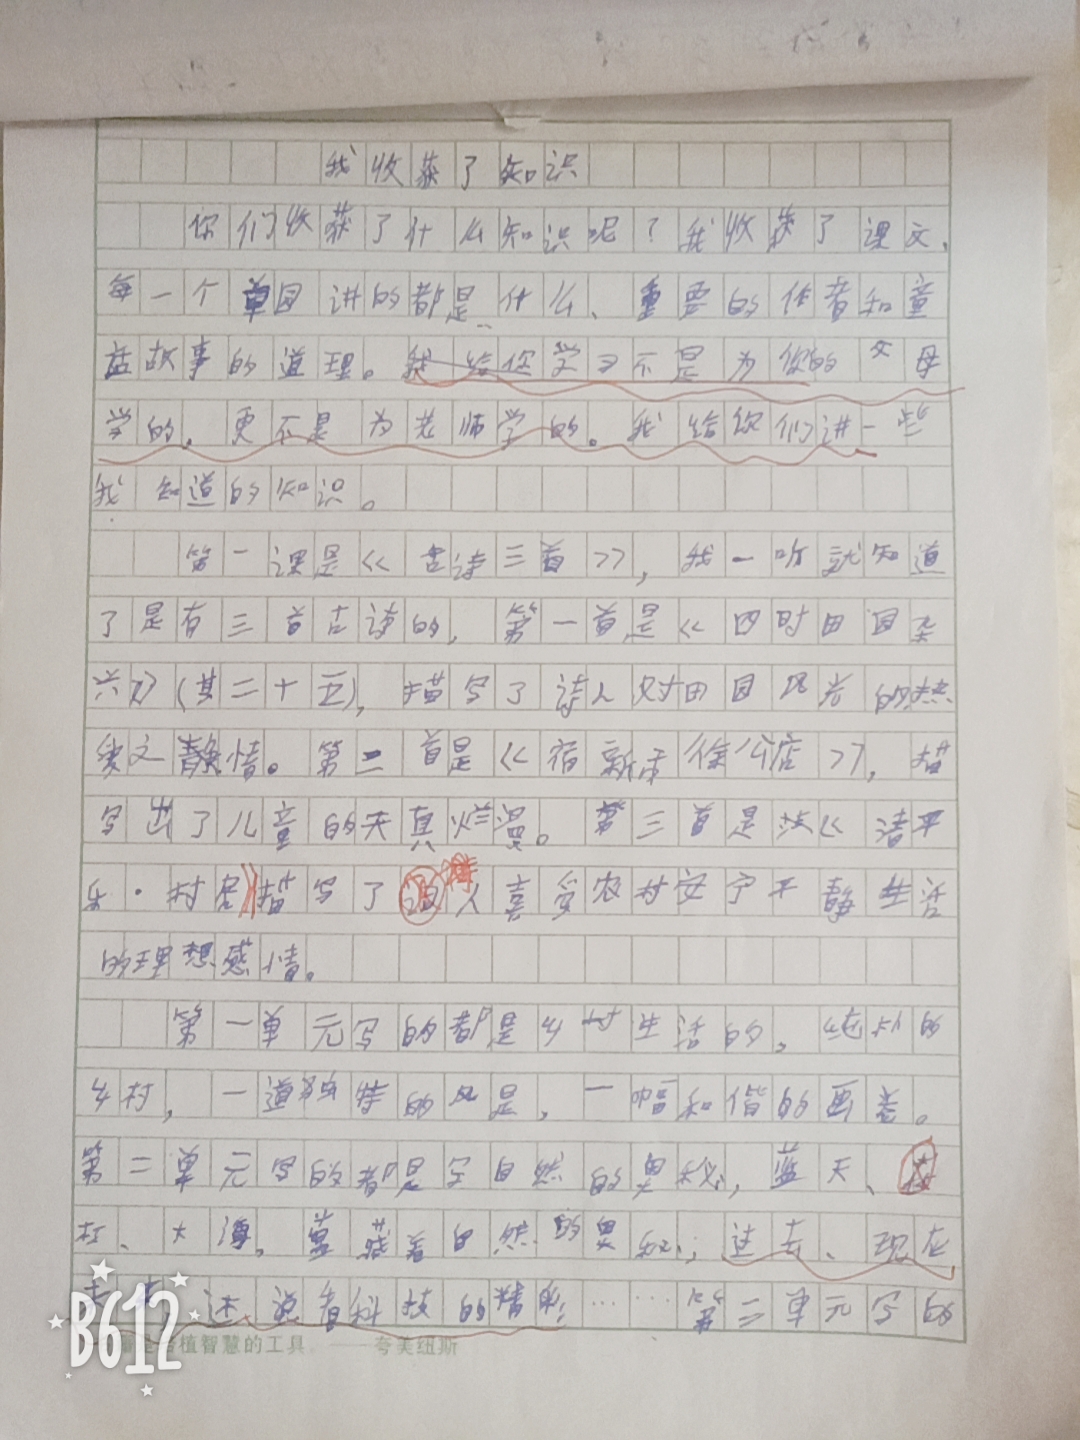 我收获了知识
你们收获了什么知识呢？我收获了课文、
每一个单园讲的都是什么、重要的作者和童
话故事的道理。我给你学习不是为你的父母
学的，更不是为老师学的。我给你们讲一些
我知道的知识。
第一课是《古诗三首》，我一听就知道
了是有三首古诗的，第一首是《四时田园杂
兴》（其二十五），描写了诗人对田园风光的热
爱之情。第二首是《宿新市徐公店》，描
写出了儿童的天真烂漫。第三首是《清平
乐·村居》描写了诗人喜爱农村安宁平静生活
的理想感情。
第一单元写的都是乡村生活的。纯朴的
乡村，一道独特的风景，一幅和谐的画卷。
第二单元写的都是写自然的奥秘，蓝天、
大海。蕴藏着自然的奥秘；过去、现在
述说着科技的精彩……第三单元写的
B612
植智慧的工具。——夸美纽斯